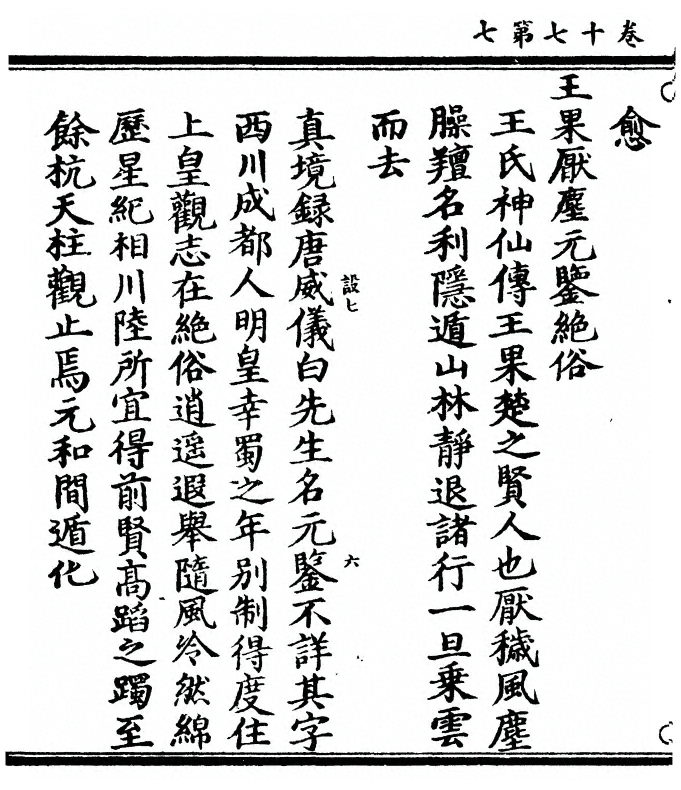 卷十七第七
愈
王果厭塵元鑒絶俗
王氏神仙傳王果楚之賢人也厭穢風塵
臊羶名利隱遁山林靜退諸行一旦乗雲
而去
設七
六
真境録唐威儀白先生名元鑒不詳其字
西川成都人明皇幸蜀之年别制得度住
上皇觀志在絶俗逍遥遐舉隨風泠然綿
歷星紀相川陸所宜得前賢高蹈之躅至
餘杭天柱觀止焉元和間遁化